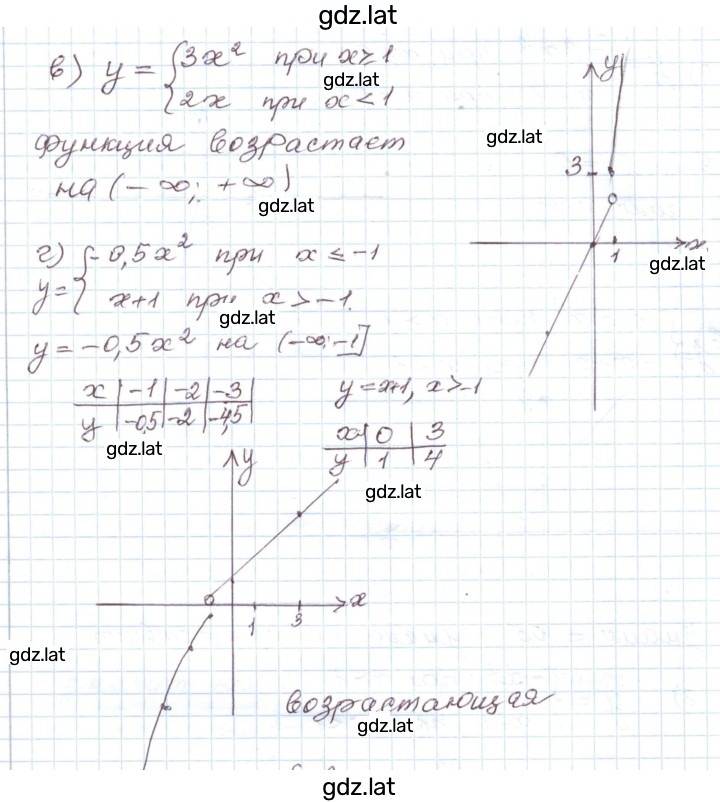 gdz.lat
в) y = { 3x² при x ≥ 1
gdz.lat
2x при x < 1
функция возрастает
на (-∞; +∞)
gdz.lat
y
gdz.lat
3
x
1
gdz.lat
г) y = { -0,5x² при x ≤ -1
x+1 при x > -1.
gdz.lat
y = -0,5x² на (-∞; -1]
x | -1 | -2 | -3
y | -0,5 | -2 | -4,5
gdz.lat
y = x+1, x > -1
x | 0 | 3
y | 1 | 4
gdz.lat
y
x
1 3
gdz.lat
возрастающая
gdz.lat
gdz.lat